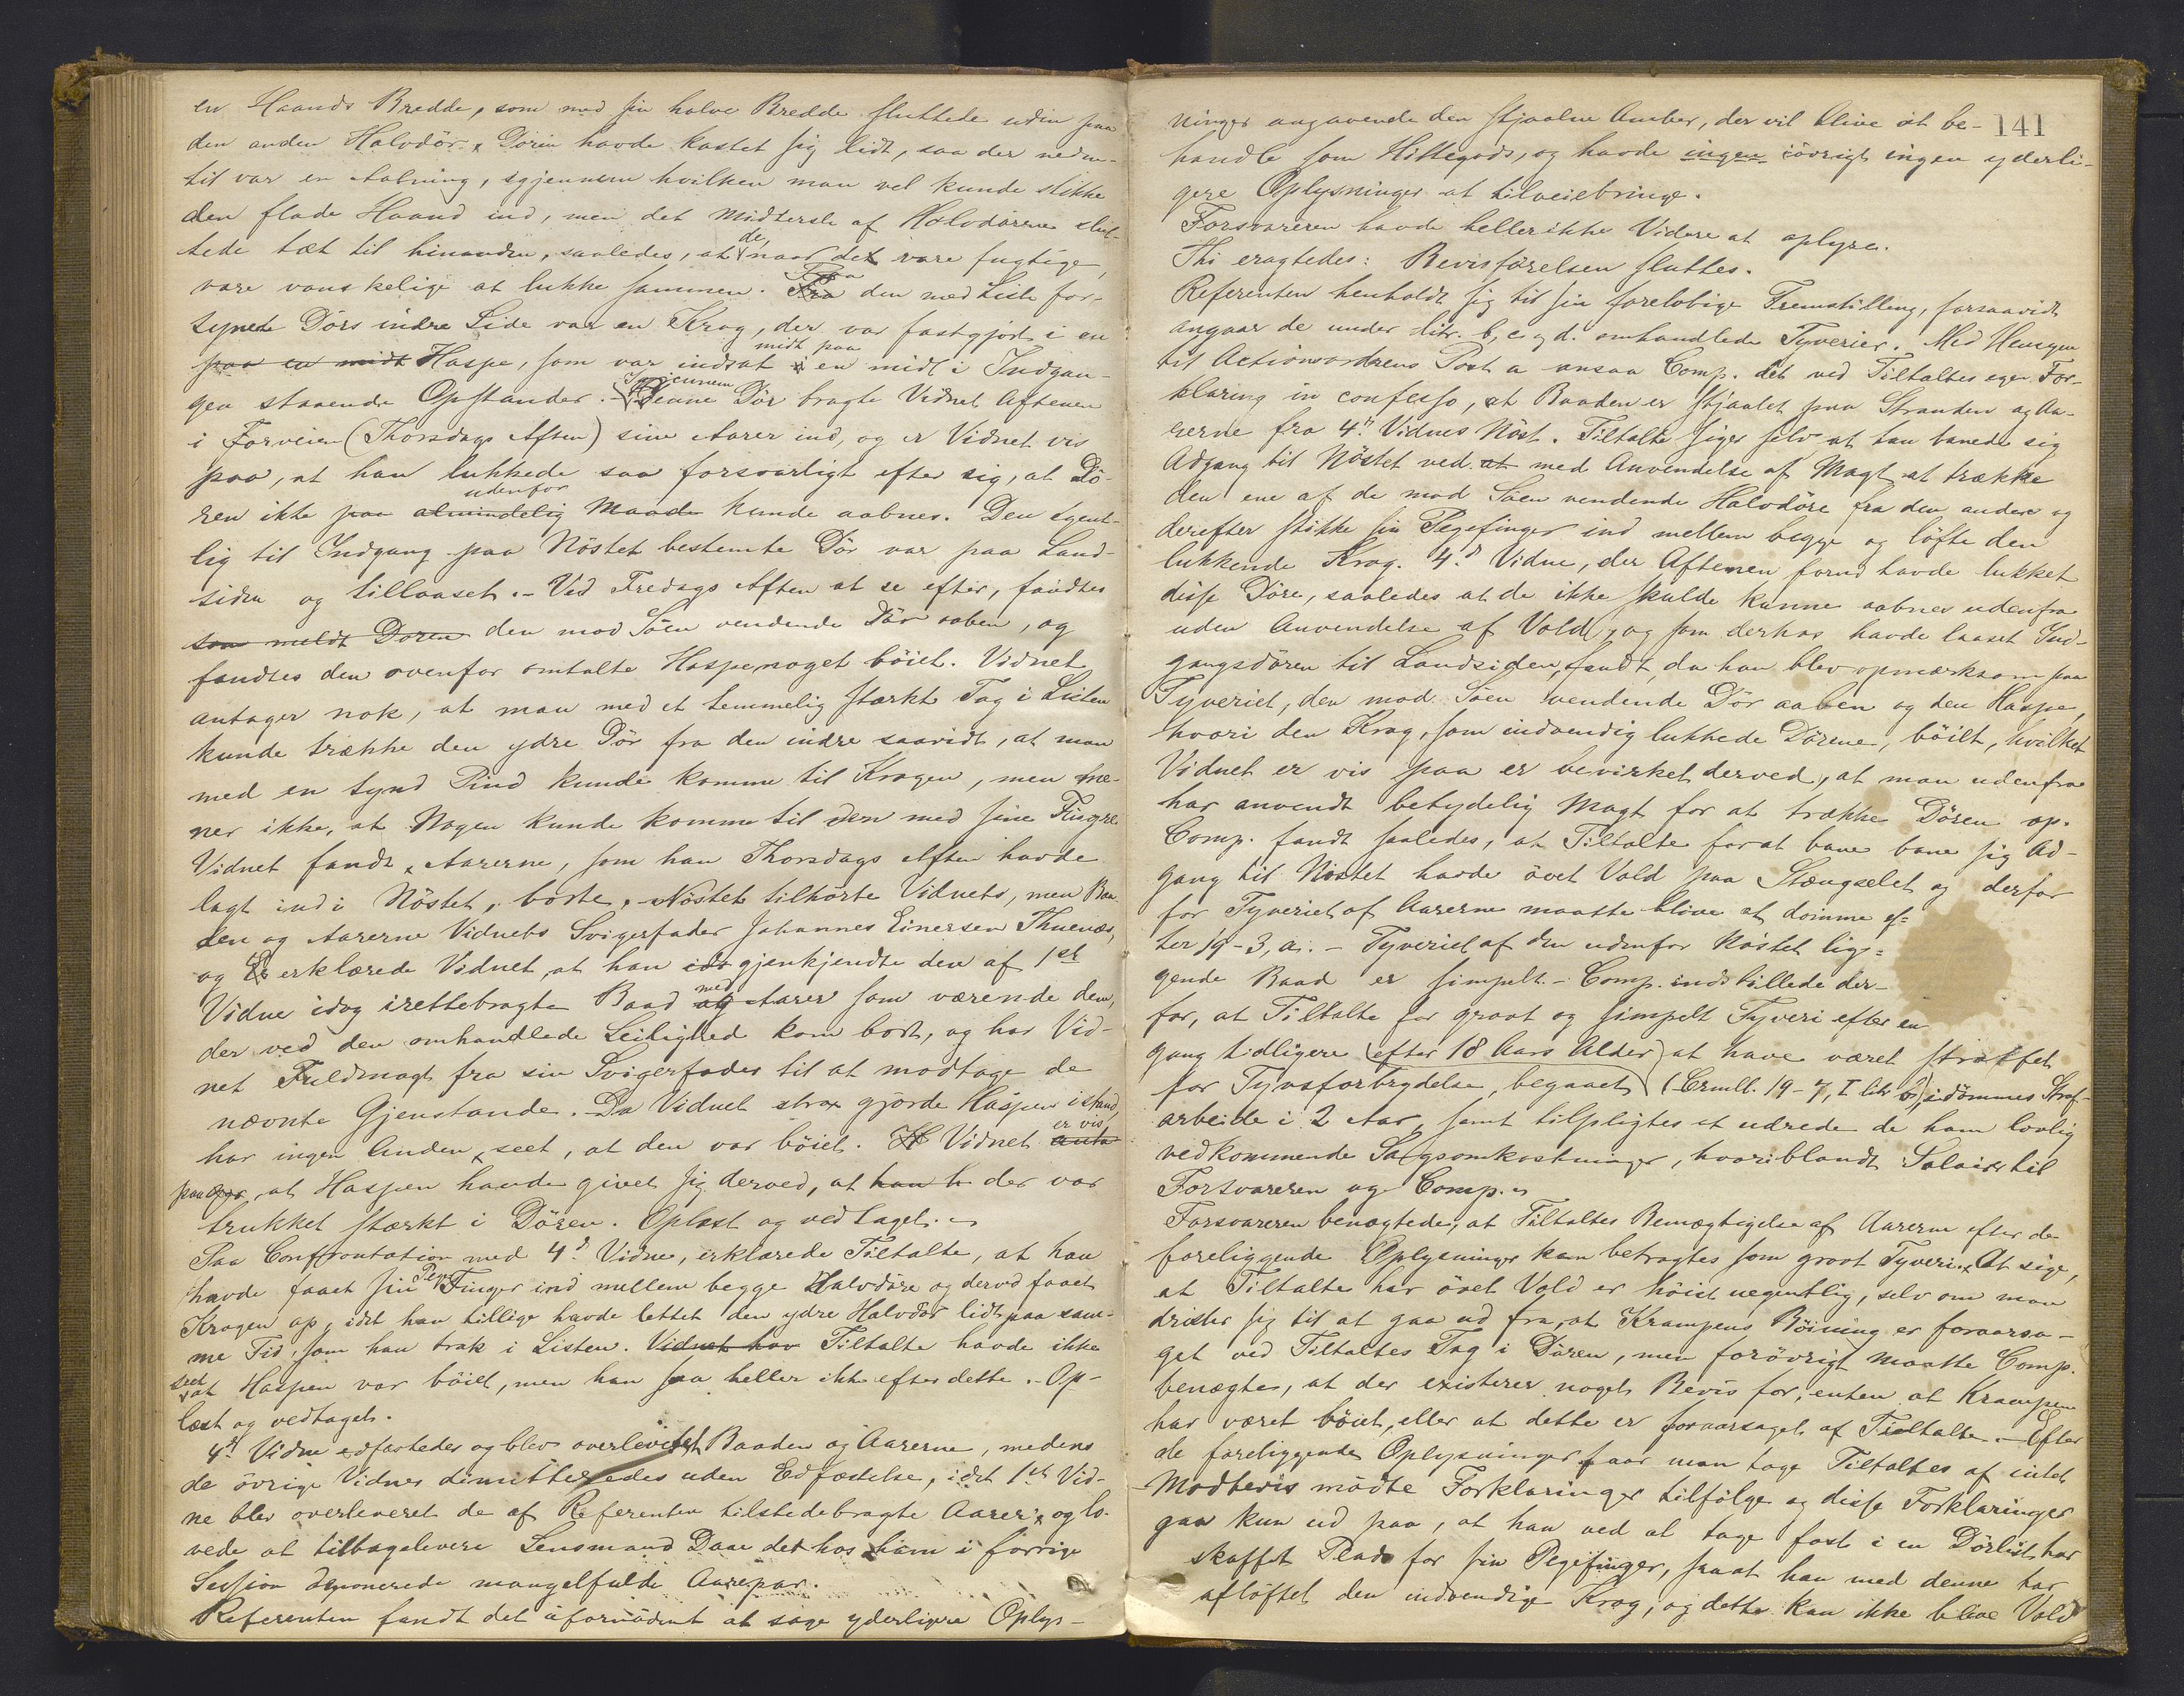 en Haands Bredde, som med sin halve Bredde sluttede uden paa
den anden Halvdör. Dören havde kastet sig lidt, saa der neden-
til var en Aabning, igjennem hvilken man vel kunde stikke
den flade Haand ind, men det midterste af Halvdörene slut-
tede tæt til hinanden, saaledes, at de, naar det vare fugtige,
vare vanskelige at lukke sammen. Fra Paa den med Liste for-
synede Dörs indre Side var en Krog, der var fastgjort i en
paa en midt Haspe, som var indsat i midt paa en midt i Indgan-
gen staaende Opstander. - Igjennem Denne Dör bragte Vidnet Aftenen
i Forveien (Thorsdags Aften) sine Aarer ind, og er Vidnet vis
paa, at han lukkede saa forsvarligt efter sig, at Dö-
ren ikke paa almindelig Maade udenfor kunde aabnes. Den egent-
lig til Indgang paa Nöstet bestemte Dör var paa Land-
siden og tillaaset. - Ved Fredags Aften at se efter, fandtes
saa meldt Doren den mod Söen vendende Dör aaben, og
fandtes den ovenfor omtalte Haspe noget böiet. Vidnet
antager nok, at man med et temmelig stærkt Tag i Listen
kunde trække den ydre Dör fra den indre saavidt, at man
med en tynd Pind kunde komme til Krogen, men me-
ner ikke, at Nogen kunde komme til den med sine Fingre
Vidnet fandt Aarerne, som han Thorsdags Aften havde
lagt ind i Nöstet, borte. Nöstet tilhörte Vidnets, men Baa-
den og Aarerne Vidnets Svigerfader Johannes Einersen Thuenæs,
og erklærede Vidnet, at han ido gjenkjendte den af 1st
Vidne idag irettebragte Baad og med Aarer som værende dem,
der ved den omhandlede Leilighed kom bort, og har Vid-
net Fuldmagt fra sin Svigerfader til at modtage de
nævnte Gjenstande. Da Vidnet strax gjorde Haspen istand,
har ingen Anden seet, at den var böiet. Vidnet anta er vis
paa, at Haspen havde givet sig derved, at han h der var
trukket stærkt i Dören. Oplæst og vedtaget.
Paa Confrontation med 4d Vidne, erklærede Tiltalte, at han
havde faaet sin Pege Finger ind mellem begge Halvdöre og derved faaet
Krogen op, idet han tillige havde lettet den ydre Halvdör lidt paa sam-
me Tid, som han trak i Listen. Vidnet hav Tiltalte havde ikke
seet at Haspen var böiet, men han saa heller ikke efter dette. - Op-
læst og vedtaget.
4d Vidne edfæstedes og blev overleveret Baaden og Aarerne, medens
de övrige Vidner dimitteredes uden Edfæstelse, idet 1st Vid-
ne blev overleveret de af Referenten tilstedebragte Aarer, og lo-
vede at tilbagelevere Lensmand Daae det hos ham i forrige
Session deponerede mangelfulde Aarepar.
Referenten fandt det ufornödent at söge yderligere Oplys-
141
ninger angaaende den stjaalne Amber, der vil blive at be-
handle som Hittegods, og havde ingen iövrigt ingen yderli-
gere Oplysninger at tilveiebringe.
Forsvareren havde heller ikke Videre at oplyse.
Thi eragtedes: Bevisförelsen sluttes.
Referenten henholdt sig til sin forelöbige Fremstilling, forsaavidt
angaar de under litr. b, c og d. omhandlede Tyverier. Med Hensyn
til Actionsordrens Post a ansaa Comp. det ved Tiltaltes egen For-
klaring in confesso, at Baaden er stjaalet paa Stranden og Aa-
rerne fra 4d Vidnes Nöst. Tiltalte siger selv at han banede sig
Adgang til Nöstet ved at med Anvendelse af Magt at trække
den ene af de mod Söen vendende Halvdöre fra den anden og
derefter stikke sin Pegefinger ind mellem begge og löfte den
lukkende Krog. 4d Vidne, der Aftenen forud havde lukket
disse Döre, saaledes at de ikke skulde kunne aabnes udenfra
uden Anvendelse af Vold, og som derhos havde laaset Ind-
gangsdören til Landsiden, fandt, da han blev opmærksom paa
Tyveriet, den mod Söen vendende Dör aaben og den Haspe,
hvori den Krog, som indvendig lukkede Dörene, böiet, hvilket
Vidnet er vis paa er bevirket derved, at man udenfra
har anvendt betydelig Magt for at trække Dören op.
Comp. fandt saaledes, at Tiltalte for at bane bane sig Ad-
gang til Nöstet havde övet Vold paa Stængselet og derfor
for Tyveriet af Aarerne maatte blive at dömme ef-
ter 19-3, a. - Tyveriet af den udenfor Nöstet lig-
gende Baad er simpelt. - Comp. indstillede der-
for, at Tiltalte for grovt og simpelt Tyveri efter en
gang tidligere (efter 18 Aars Alder) at have været straffet
for Tyvsforbrydelse, begaaet (Crmll. 19-7, I litr b), idömmes Straf-
arbeide i 2 Aar, samt tilpligtes at udrede de ham lovlig
vedkommende Sagsomkostninger, hvoriblandt Salairer til
Forsvareren og Comp.
Forsvareren benægtede, at Tiltaltes Bemægtigelse af Aarerne efter de
foreliggende Oplysninger kan betragtes som grovt Tyveri. At sige,
at Tiltalte har övet Vold er höist uegentlig, selv om man
drister sig til at gaa ud fra, at Krampens Böining er foraarsa-
get ved Tiltaltes Tag i Dören, men forövrigt maatte Comp.
benægte, at der existerer noget Bevis for, enten at Krampen
har været böiet, eller at dette er foraarsaget af Tiltalte. - Efter
de foreliggende Oplysninger faar man tage Tiltaltes af intet
Modbevis mödte Forklaringer tilfölge og disse Forklaringer
gaa kun ud paa, at han ved at tage fast i en Dörlist har
skaffet Plads for sin Pegefinger, saa at han med denne har
aflöftet den indvendige Krog, og dette kan ikke blive Vold